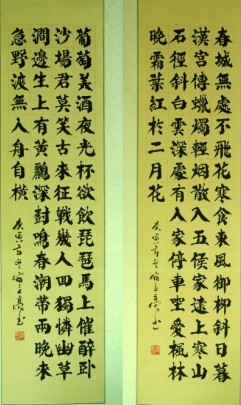 春城無處不飛花寒食東風御柳斜日暮
漢宮傳蠟燭輕烟散入五侯家遠上寒山
石徑斜白雲深處有人家停車坐愛楓林
晚霜葉紅於二月花
庚寅年冬 書
葡萄美酒夜光杯欲飲琵琶馬上催醉臥
沙場君莫笑古來征戰幾人回獨憐幽草
澗邊生上有黃鸝深樹鳴春潮帶雨晚來
急野渡無人舟自橫
庚寅年冬 書